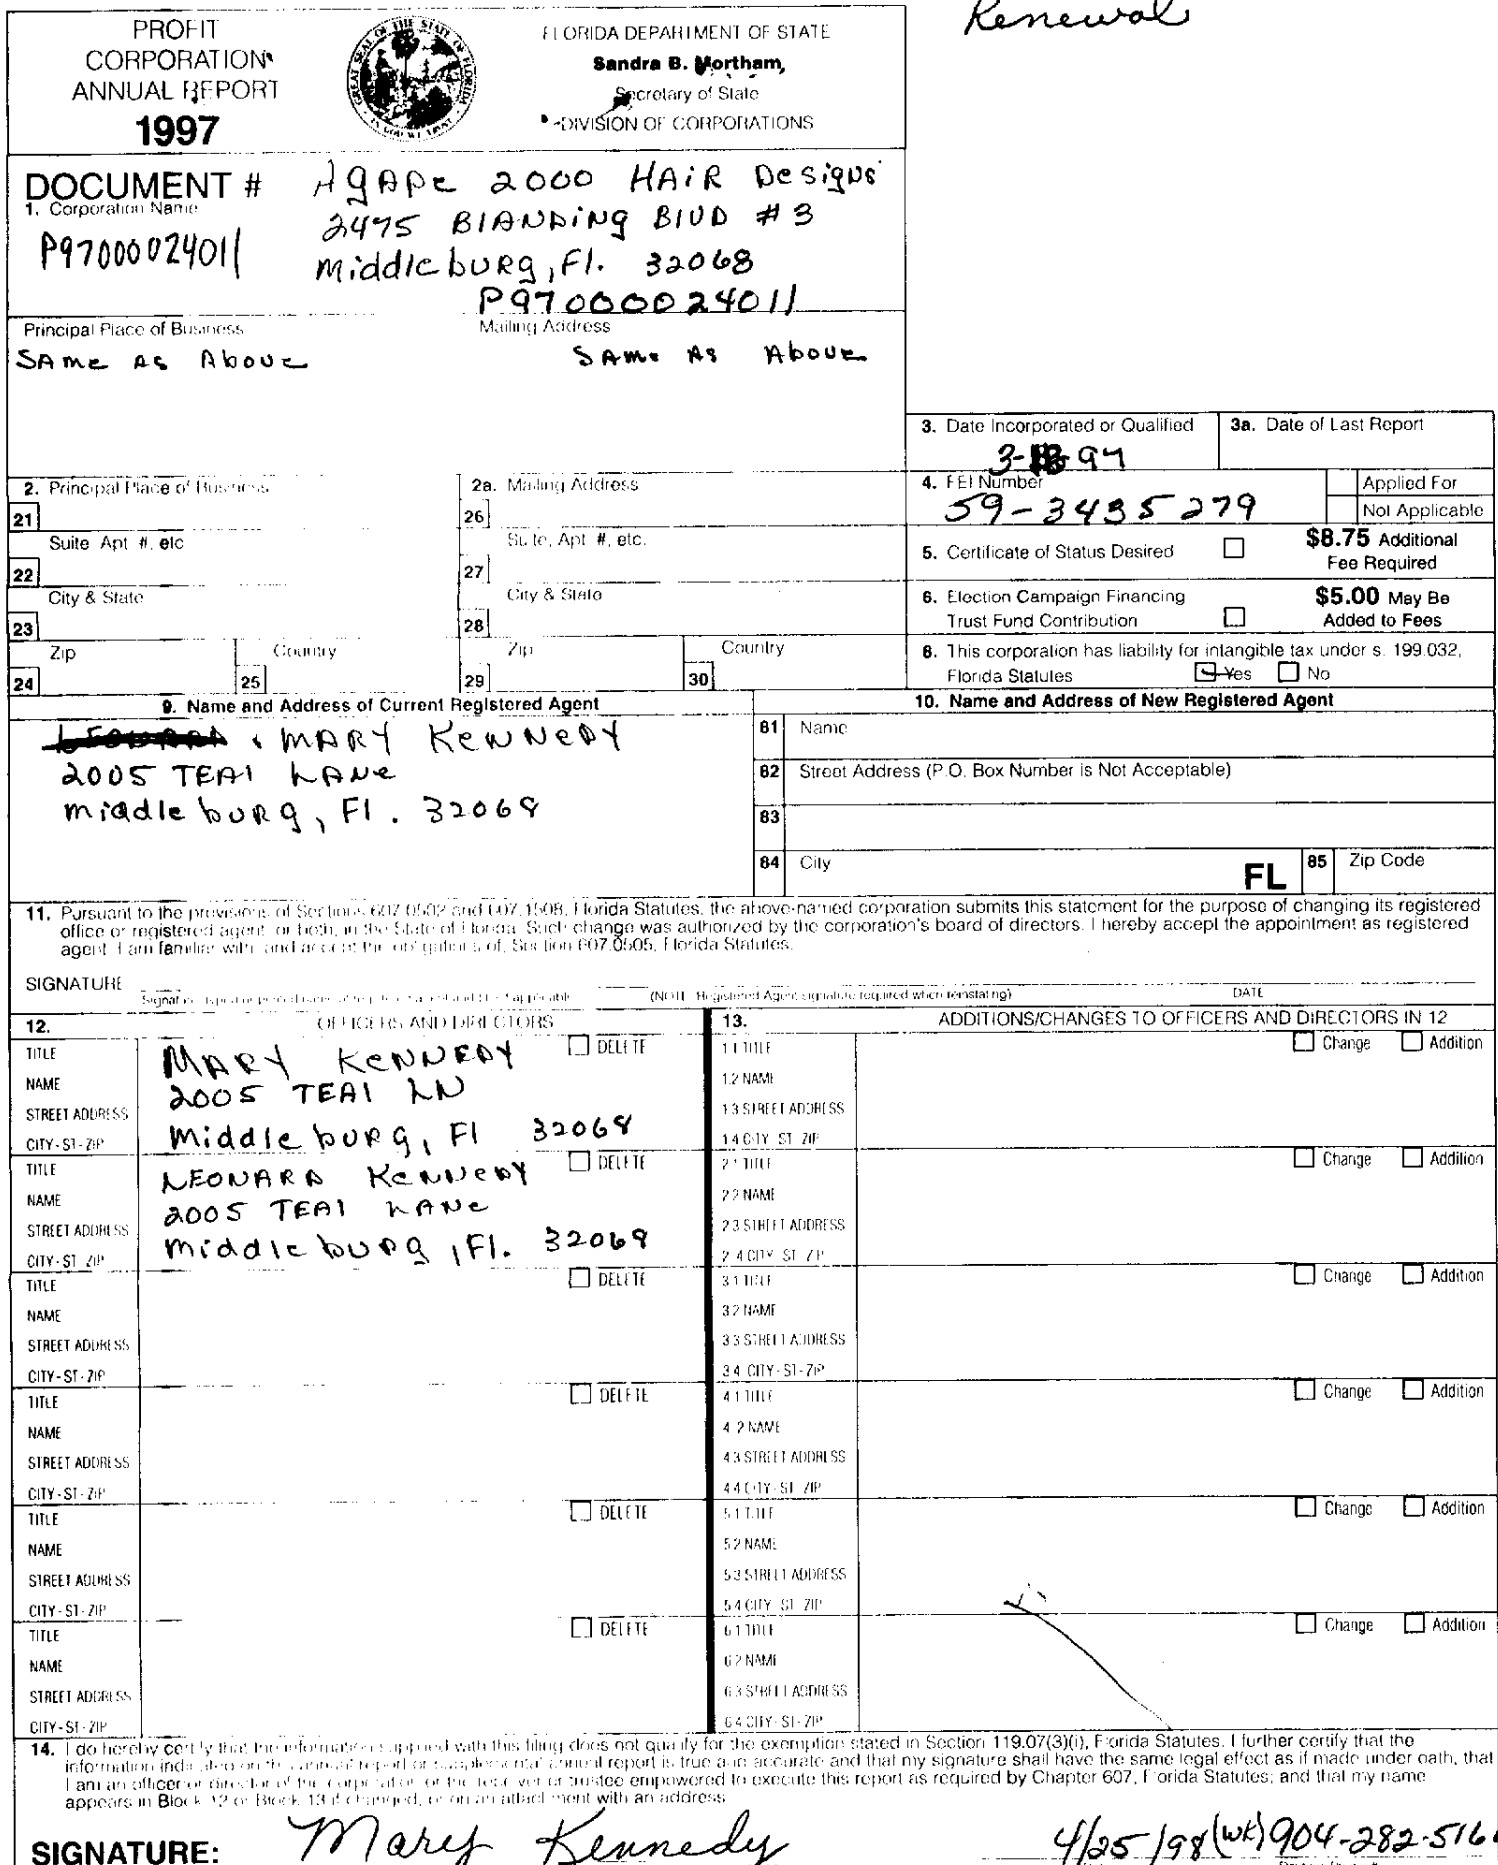 Renewal
PROFIT
CORPORATION
ANNUAL REPORT
1997
GREAT SEAL OF THE STATE OF FLORIDA
IN GOD WE TRUST
FLORIDA DEPARTMENT OF STATE
Sandra B. Mortham,
Secretary of State
DIVISION OF CORPORATIONS
DOCUMENT #
1. Corporation Name
P97000024011
AgApe 2000 HAiR Designs
2475 BlANDiNg BlVD # 3
Middleburg, Fl. 32068
P97000024011
Principal Place of Business
SAme As Above
Mailing Address
SAme As Above
3. Date Incorporated or Qualified
3- 97
3a. Date of Last Report
2. Principal Place of Business
21
Suite Apt #, etc
22
City & State
23
Zip
24
Country
25
2a. Mailing Address
26
Suite, Apt #, etc.
27
City & State
28
Zip
29
Country
30
4. FEI Number
59-3435279
Applied For
Not Applicable
5. Certificate of Status Desired
$8.75 Additional
Fee Required
6. Election Campaign Financing
Trust Fund Contribution
$5.00 May Be
Added to Fees
8. This corporation has liability for intangible tax under s. 199.032,
Florida Statutes Yes No
9. Name and Address of Current Registered Agent
MARY KeNNeDY
2005 TEAl LANe
middleburg, Fl. 32068
10. Name and Address of New Registered Agent
81 Name
82 Street Address (P.O. Box Number is Not Acceptable)
83
84 City
FL
85 Zip Code
11. Pursuant to the provisions of Sections 607.0502 and 607.1508, Florida Statutes, the above-named corporation submits this statement for the purpose of changing its registered
office or registered agent, or both, in the State of Florida. Such change was authorized by the corporation's board of directors. I hereby accept the appointment as registered
agent. I am familiar with, and accept the obligations of, Section 607.0505, Florida Statutes.
SIGNATURE
Signature, typed or printed name of registered agent and title if applicable
(NOTE Registered Agent signature required when reinstating)
DATE
12. OFFICERS AND DIRECTORS
13. ADDITIONS/CHANGES TO OFFICERS AND DIRECTORS IN 12
TITLE
NAME
STREET ADDRESS
CITY-ST-ZIP
MARY KeNNEDY
2005 TEAl LN
Middleburg, Fl 32068
DELETE
1.1 TITLE
1.2 NAME
1.3 STREET ADDRESS
1.4 CITY-ST-ZIP
Change Addition
TITLE
NAME
STREET ADDRESS
CITY-ST-ZIP
LEONARD KeNNeDY
2005 TEAl LANe
middleburg, Fl. 32068
DELETE
2.1 TITLE
2.2 NAME
2.3 STREET ADDRESS
2.4 CITY-ST-ZIP
Change Addition
TITLE
NAME
STREET ADDRESS
CITY-ST-ZIP
DELETE
3.1 TITLE
3.2 NAME
3.3 STREET ADDRESS
3.4 CITY-ST-ZIP
Change Addition
TITLE
NAME
STREET ADDRESS
CITY-ST-ZIP
DELETE
4.1 TITLE
4.2 NAME
4.3 STREET ADDRESS
4.4 CITY-ST-ZIP
Change Addition
TITLE
NAME
STREET ADDRESS
CITY-ST-ZIP
DELETE
5.1 TITLE
5.2 NAME
5.3 STREET ADDRESS
5.4 CITY-ST-ZIP
Change Addition
TITLE
NAME
STREET ADDRESS
CITY-ST-ZIP
DELETE
6.1 TITLE
6.2 NAME
6.3 STREET ADDRESS
6.4 CITY-ST-ZIP
Change Addition
14. I do hereby certify that the information supplied with this filing does not qualify for the exemption stated in Section 119.07(3)(i), Florida Statutes. I further certify that the
information indicated on this annual report or supplemental annual report is true and accurate and that my signature shall have the same legal effect as if made under oath, that
I am an officer or director of the corporation or the receiver or trustee empowered to execute this report as required by Chapter 607, Florida Statutes; and that my name
appears in Block 12 or Block 13 if changed, or on an attachment with an address
SIGNATURE: Mary Kennedy 4/25/98 (wk) 904-282-516